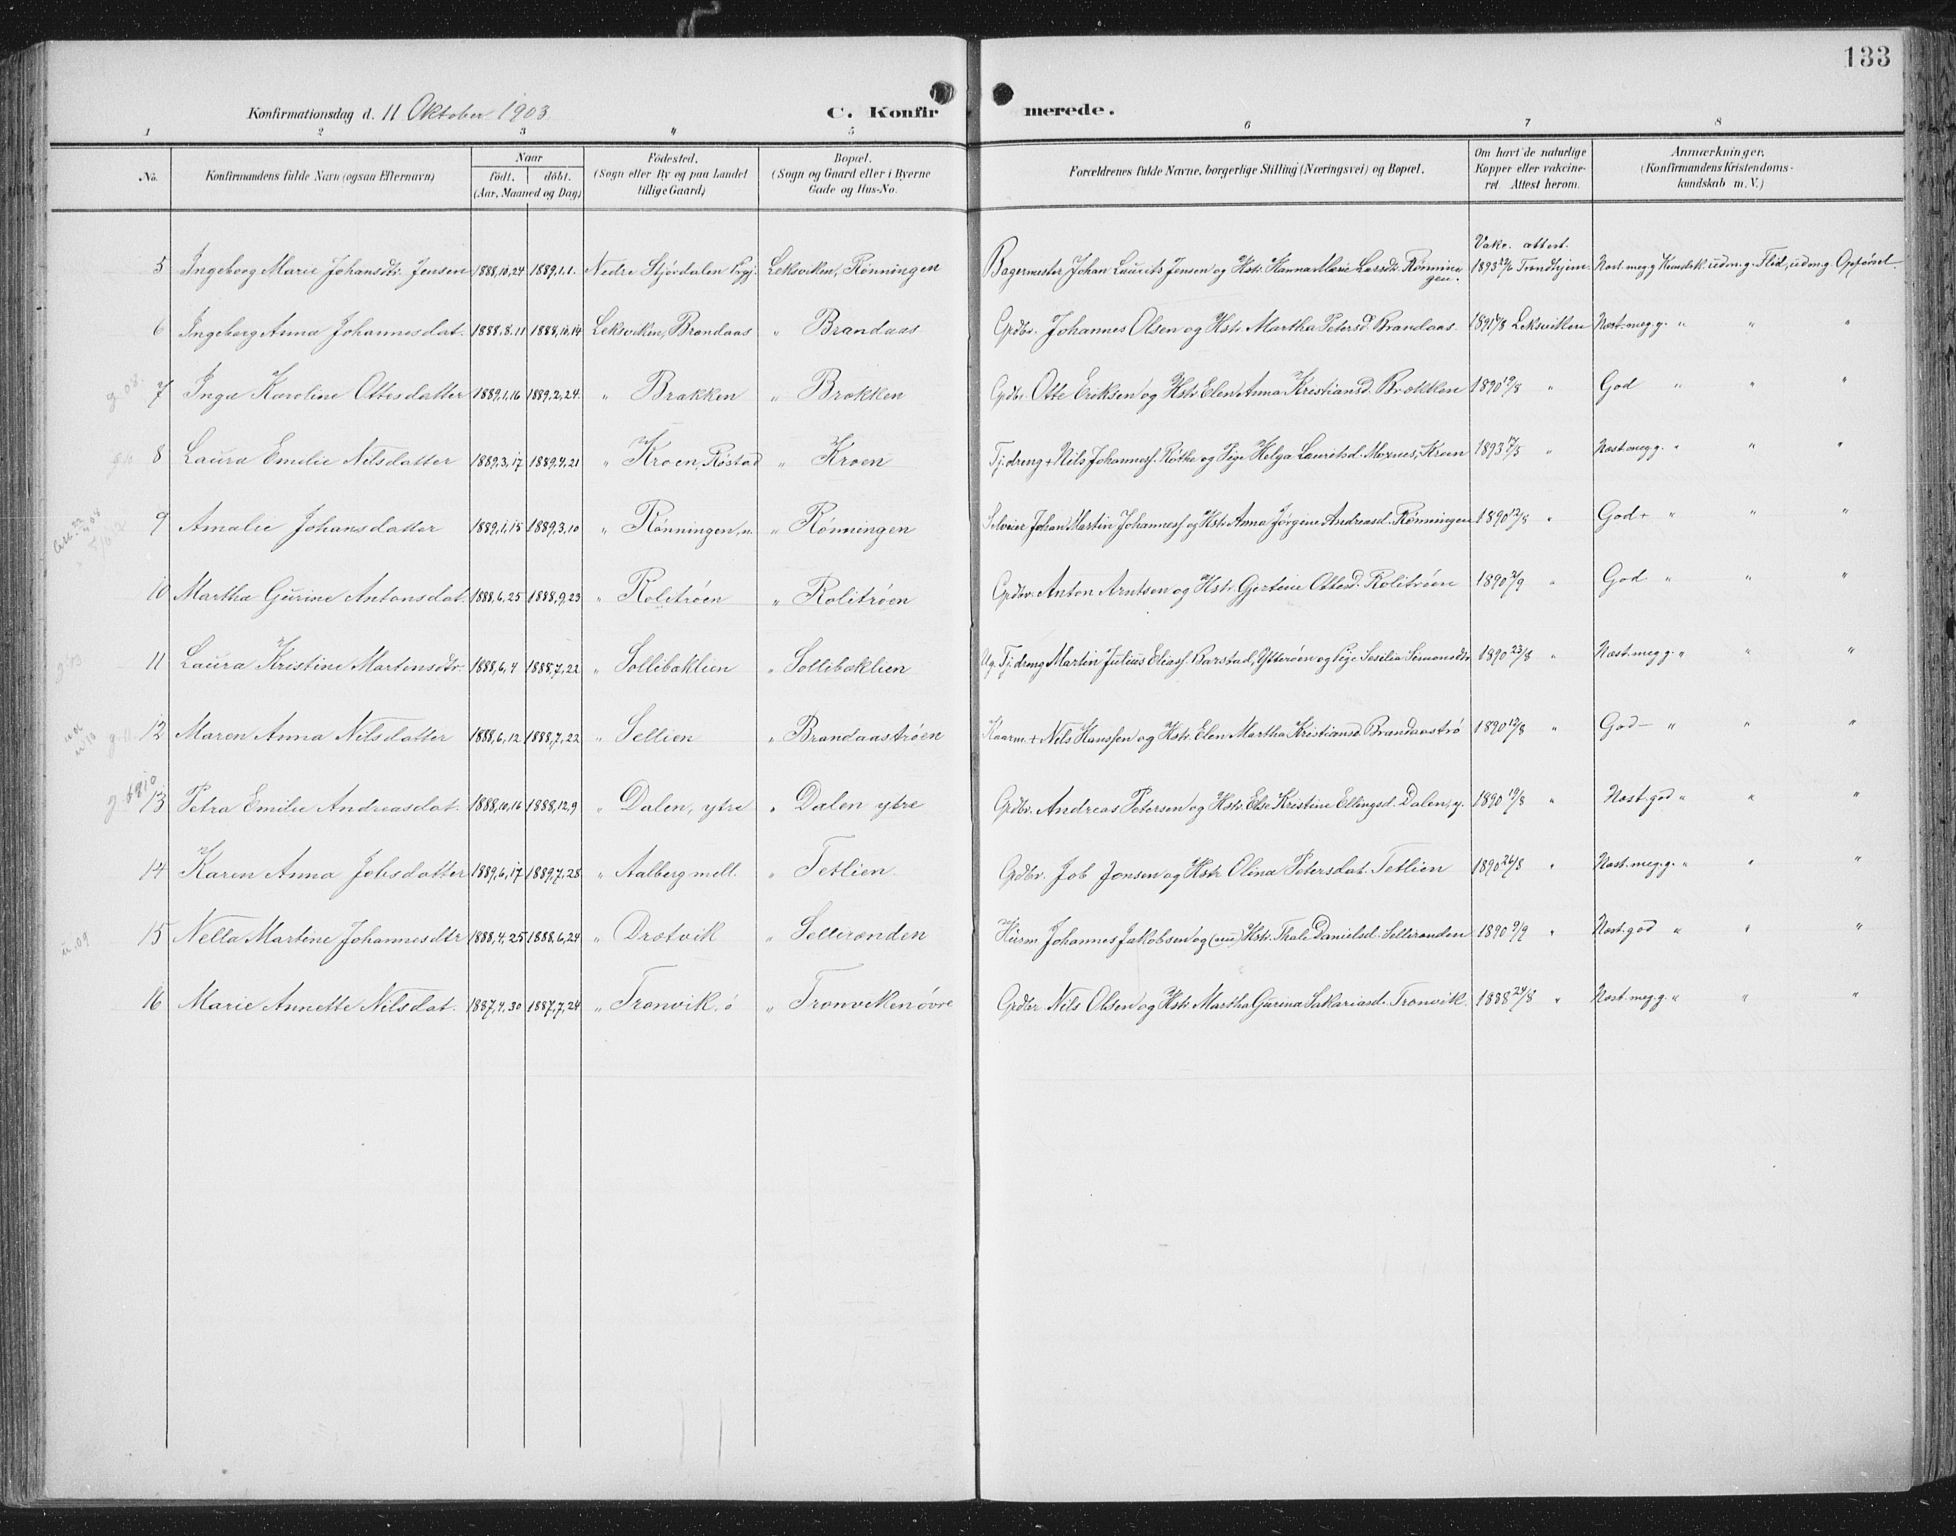 133
Konfirmationsdag d. 11 Oktober 1903. C. Konfirmerede.
1 2 3 " 5 6 7 8
No. Konfirmandens fulde Navn (ogsaa Efternavn) Naar født. døbt. (Aar, Maaned og Dag) Fødested. (Sogn eller By og paa Landet tillige Gaard) Bopæl. (Sogn og Gaard eller i Byerne Gade og Hus-No. Forældrenes fulde Navne, borgerlige Stilling (Næringsvei) og Bopæl. Om havt de naturlige Kopper eller vakcineret. Attest herom. Anmærkninger. (Konfirmandens Kristendomskundskab m. V.)
Vakc. attest.
5 Ingeborg Marie Johansdtr. Jensen 1888,10,24 1889.1.1. Nedre Stjørdalen Prgj. Leksviken, Rønningen Bagermester Johan Laurits Jensen og Hstr. Hanna Marie Larsdtr. Rønningen. 1893 Trndhjem. Næst. meg.g. Kundsk. udm.g. Flid, udm.g. Opførsel.
6 Ingeborg Anna Johannesdat. 1888.8.11 1888,10,14 Leksviken, Brandaas " Brandaas Grdbr. Johannes Olsen og Hstr. Martha Petersd. Brandaas. 1891 Leksviken Næst. meg.g. " " "
g. 08. 7 Inga Karoline Ottesdatter 1889,1,16 1889.2,24. " Brækken " Brækken Grdbr. Otte Eriksen og Hstr. Elen Anna Kristiansd. Brækken 1890 19/8 " God " " "
8 Laura Emilie Nilsdatter 1889,3,17 1889,4,21 " Kroen, Røstad " Kroen Tj.dreng + Nils Johannesf. Røthe og Pige Helga Lauritsd. Moxnes, Kroen 1893 17/5 " Næst. meg g. " " "
9 Amalie Johansdatter 1889,1,15 1889,3,10 " Rønningen, n. " Rønningen Selveier Johan Martin Johannesf. og Hstr. Anna Jørgine Andreasd. Rønningen 1890 12/8 " God + " " "
10 Martha Gurine Antonsdat. 1888,6,25 1888,9,23 " Rolitrøen " Rolitrøen Grdbr. Anton Arntsen og Hstr. Gjertine Ottesd. Rolitrøen 1890 2/9 " God " " "
11 Laura Kristine Martensdtr. 1888,6,4 1888,7,22 " Sollibaklien " Sollibaklien Ug. Tj.dreng Martin Julius Eliasf. Barstad, Ytterøen og Pige Sesilia Simonsdtr. 1890 23/8 " Næst. meg g. " " "
g. 11. 12 Maren Anna Nilsdatter 1888,6,12 1888,7,22 " Sellien " Brandaastrøen Kaarm. + Nils Hanssen og Hstr. Elen Martha Kristiansd. Brandaastrø 1890 12/8 " God - " " "
13 Petra Emilie Andreasdat. 1888,10,16 1888,12,9 " Dalen, ytre " Dalen ytre Grdbr. Andreas Petersen og Hstr. Else Kristine Ellingsd. Dalen, y. 1890 19/8 " Næst. god " " "
14 Karen Anna Jobsdatter 1889,6,17 1889,7,28 " Aalberg mell. " Tetlien. Grdbr. Job Jonsen og Hstr. Olina Petersdat. Tetlien 1890 26/8 " Næst. meg.g. " " "
u. 09 15 Nella Martine Johannesdtr 1888,4,25 1888,6,24 " Drotvik " Selliranden Husm Johannes Jakobsen og (nu) Hstr. Thale Danielsd. Selliranden 1890 9/9 " Næst. god " " "
16 Marie Annette Nilsdat. 1887,4,30 1887,7,24 " Tronvik, ø " Tronviken øvre Grdbr. Nils Olsen og Hstr. Martha Gurina Sakariasd. Tronvik. 1888 24/8 " Næst. meg.g. " " "